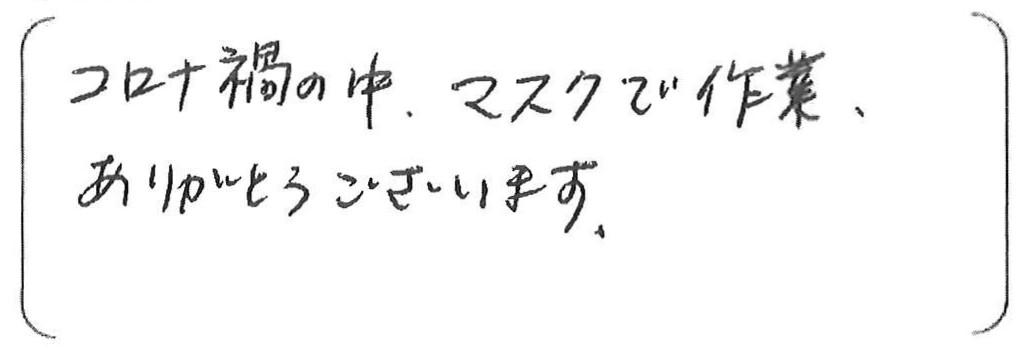 コロナ禍の中、マスクで作業、
ありがとうございます。